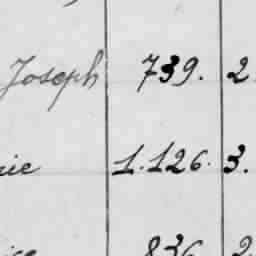 Joseph 739. 2
rie 1.126. 3.
836 2